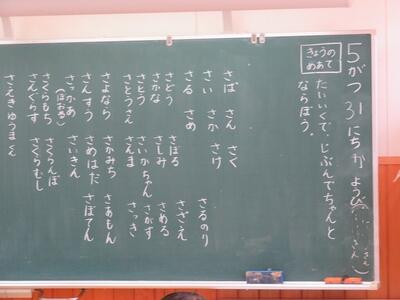 5がつ31にちかようび
きょうの
めあて
たいいくで、じぶんでちゃんと
ならぼう。
さば さん さく
さい さか さけ
さる さめ
さどう さぼる さるのり
さかな さしみ さざえ
さとう さいかちゃん さめる
さとうさん さんま さがす
さよなら さかみち さっき
さんすう さめはだ さあもん
さっかあ さいきん さぼてん
(ぼおる)
さくらもち さくらんぼ
さんぐらす さくらむし
さえきゆうまくん